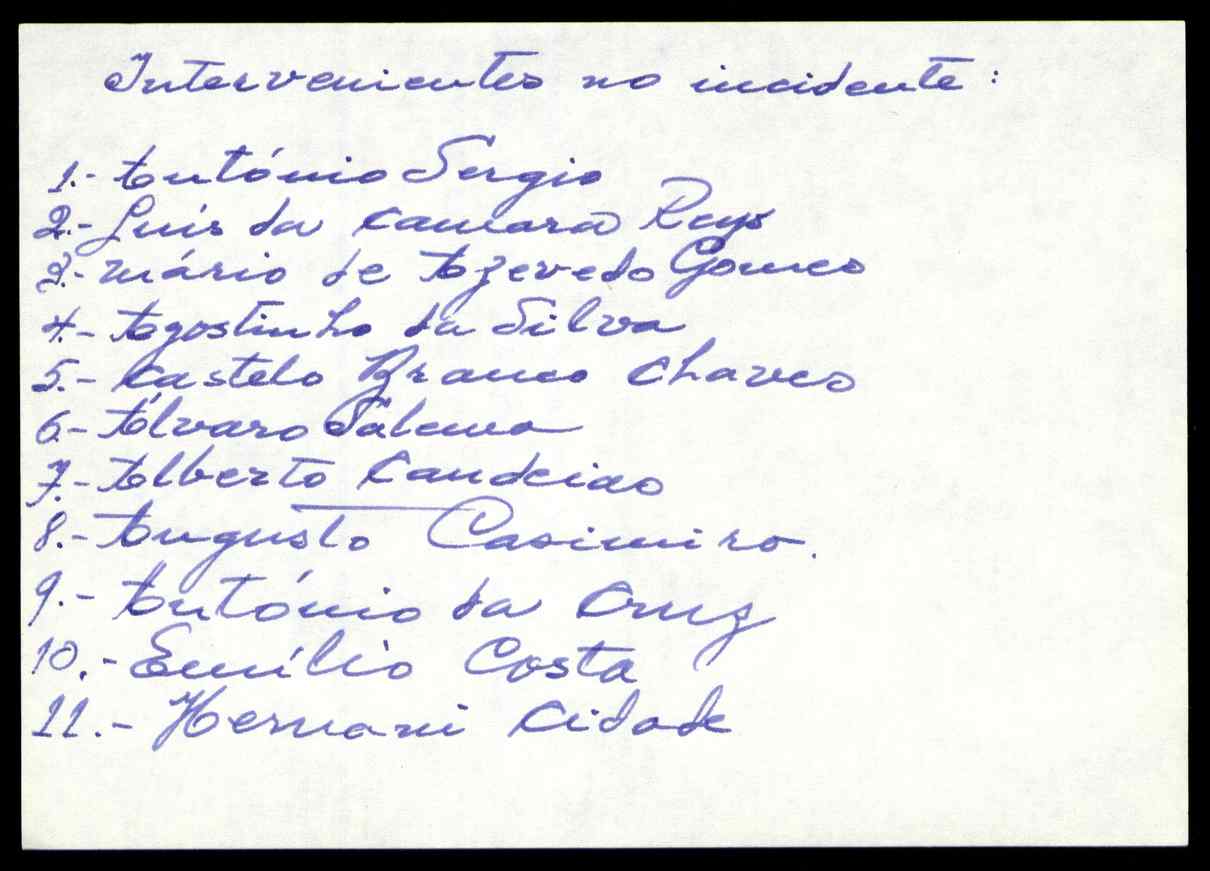 Intervenientes no incidente:
1.- António Sergio
2.- Luís da Camara Reys
3.- Mário de Azevedo Gomes
4.- Agostinho da Silva
5.- Castelo Branco Chaves
6.- Álvaro Salema
7.- Alberto Candeias
8.- Augusto Casimiro.
9.- António da Cruz
10.- Emílio Costa
11.- Hernani Cidade